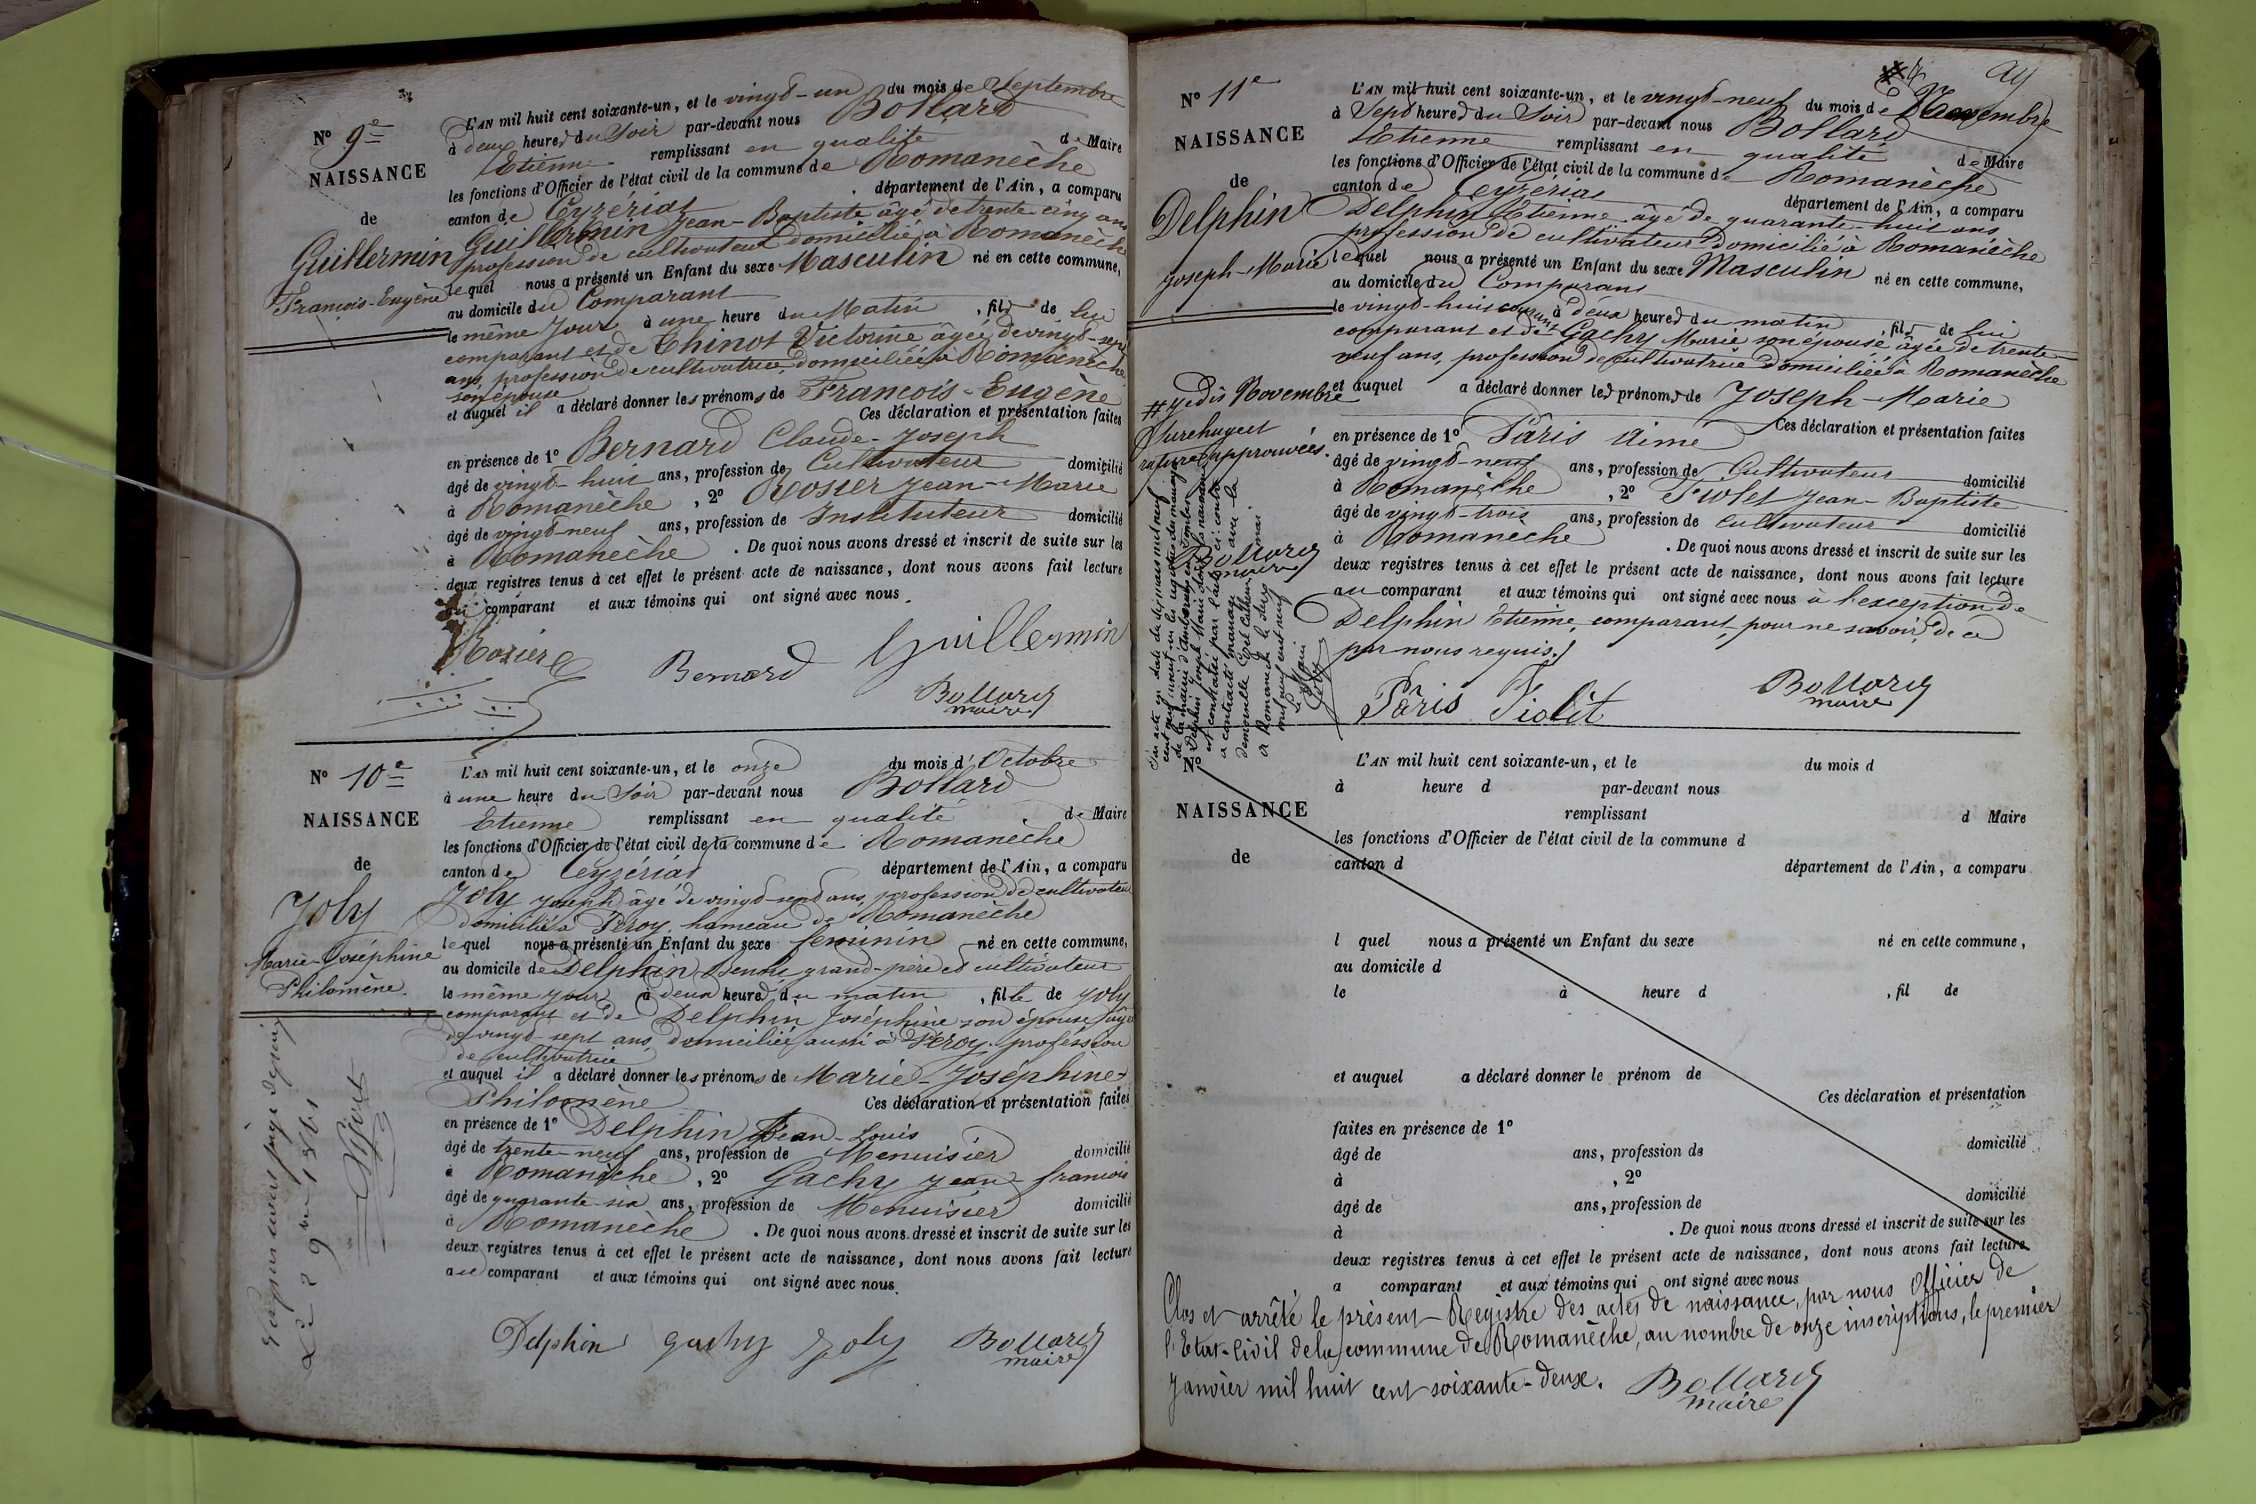 N° 9e
NAISSANCE
de
Guillermin
François-Eugène
L'AN mil huit cent soixante-un, et le vingt-un du mois de Septembre
à deux heures du Soir par-devant nous Bollard
Etienne remplissant en qualité de Maire
les fonctions d'Officier de l'état civil de la commune de Romanèche
canton de Ceyzériat département de l'Ain, a comparu
Guillermin Jean-Baptiste âgé de trente cinq ans
profession de cultivateur domicilié à Romanèche
lequel nous a présenté un Enfant du sexe Masculin né en cette commune,
au domicile du Comparant
le même jour à une heure du Matin, fils de lui
comparant et de Chinot Victorine âgée de vingt-sept
ans, profession de cultivatrice domiciliée à Romanèche
son épouse
et auquel il a déclaré donner les prénoms de François-Eugène
Ces déclaration et présentation faites
en présence de 1° Bernard Claude-Joseph
âgé de vingt-huit ans, profession de Cultivateur domicilié
à Romanèche, 2° Rosier Jean-Marie
âgé de vingt-neuf ans, profession de Instituteur domicilié
à Romanèche. De quoi nous avons dressé et inscrit de suite sur les
deux registres tenus à cet effet le présent acte de naissance, dont nous avons fait lecture
au comparant et aux témoins qui ont signé avec nous.
Rosier Bernard Guillermin
Bollard
maire
N° 10e
NAISSANCE
de
Joly
Marie-Joséphine
Philomène.
L'AN mil huit cent soixante-un, et le onze du mois d'Octobre
à une heure du Soir par-devant nous Bollard
Etienne remplissant en qualité de Maire
les fonctions d'Officier de l'état civil de la commune de Romanèche
canton de Ceyzériat département de l'Ain, a comparu
Joly Joseph âgé de vingt-sept ans, profession de cultivateur
domicilié à Peroy, hameau de Romanèche
lequel nous a présenté un Enfant du sexe féminin né en cette commune,
au domicile de Delphin grand-père et cultivateur
le même jour à deux heures du matin, fille de Joly
comparant et de Delphin Joséphine son épouse âgée
de vingt-sept ans, domiciliée aussi à Peroy profession
de cultivatrice
et auquel il a déclaré donner les prénoms de Marie-Joséphine-
Philomène Ces déclaration et présentation faites
en présence de 1° Delphin Jean-Louis
âgé de trente-neuf ans, profession de Menuisier domicilié
à Romanèche, 2° Gachy Jean-françois
âgé de quarante-six ans, profession de Menuisier domicilié
à Romanèche. De quoi nous avons dressé et inscrit de suite sur les
deux registres tenus à cet effet le présent acte de naissance, dont nous avons fait lecture
au comparant et aux témoins qui ont signé avec nous.
Delphin gachy Joly Bollard
maire
N° 11e
NAISSANCE
de
Delphin
Joseph-Marie
L'AN mil huit cent soixante-un, et le vingt-neuf du mois de Novembre
à Sept heures du Soir par-devant nous Bollard
Etienne remplissant en qualité de Maire
les fonctions d'Officier de l'état civil de la commune de Romanèche
canton de Ceyzériat département de l'Ain, a comparu
Delphin Etienne âgé de quarante-huit ans
profession de cultivateur domicilié à Romanèche
lequel nous a présenté un Enfant du sexe Masculin né en cette commune,
au domicile du Comparant
le vingt-huit courant à deux heures du matin, fils de lui
comparant et de Gachy Marie son épouse âgée de trente-
neuf ans, profession de cultivatrice domiciliée à Romanèche
et auquel a déclaré donner les prénoms de Joseph-Marie
Ces déclaration et présentation faites
en présence de 1° Pâris Aimé
âgé de vingt-neuf ans, profession de Cultivateur domicilié
à Romanèche, 2° Fiolet Jean-Baptiste
âgé de vingt-trois ans, profession de Cultivateur domicilié
à Romanèche. De quoi nous avons dressé et inscrit de suite sur les
deux registres tenus à cet effet le présent acte de naissance, dont nous avons fait lecture
au comparant et aux témoins qui ont signé avec nous à l'exception de
Delphin Etienne, comparant, pour ne savoir de ce
par nous requis.
Pâris Fiolet Bollard
maire
# je dis Novembre
Surcharge et
rature approuvées.
Bollard
maire
N°
NAISSANCE
de
L'AN mil huit cent soixante-un, et le du mois d
à heure d par-devant nous
remplissant d Maire
les fonctions d'Officier de l'état civil de la commune d
canton d département de l'Ain, a comparu
l quel nous a présenté un Enfant du sexe né en cette commune,
au domicile d
le à heure d, fil de
et auquel a déclaré donner le prénom de
Ces déclaration et présentation
faites en présence de 1°
âgé de ans, profession de domicilié
à, 2°
âgé de ans, profession de domicilié
à. De quoi nous avons dressé et inscrit de suite sur les
deux registres tenus à cet effet le présent acte de naissance, dont nous avons fait lecture
a comparant et aux témoins qui ont signé avec nous
Clos et arrêté le présent Registre des actes de naissance, par nous Officier de
l'Etat-Civil de la commune de Romanèche, au nombre de onze inscriptions, le premier
Janvier mil huit cent soixante-deux. Bollard
maire